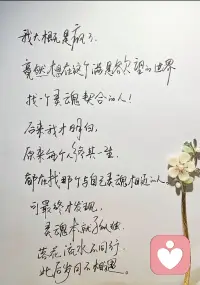 我大概是疯了,
竟然想在这个满是欲望的世界
找个灵魂契合的人!
后来我才明白,
原来每个人终其一生,
都在找那个与自己灵魂相近的人
可最终才发现,
灵魂本就孤独
落花流水不同行
此后岁月不相逢。